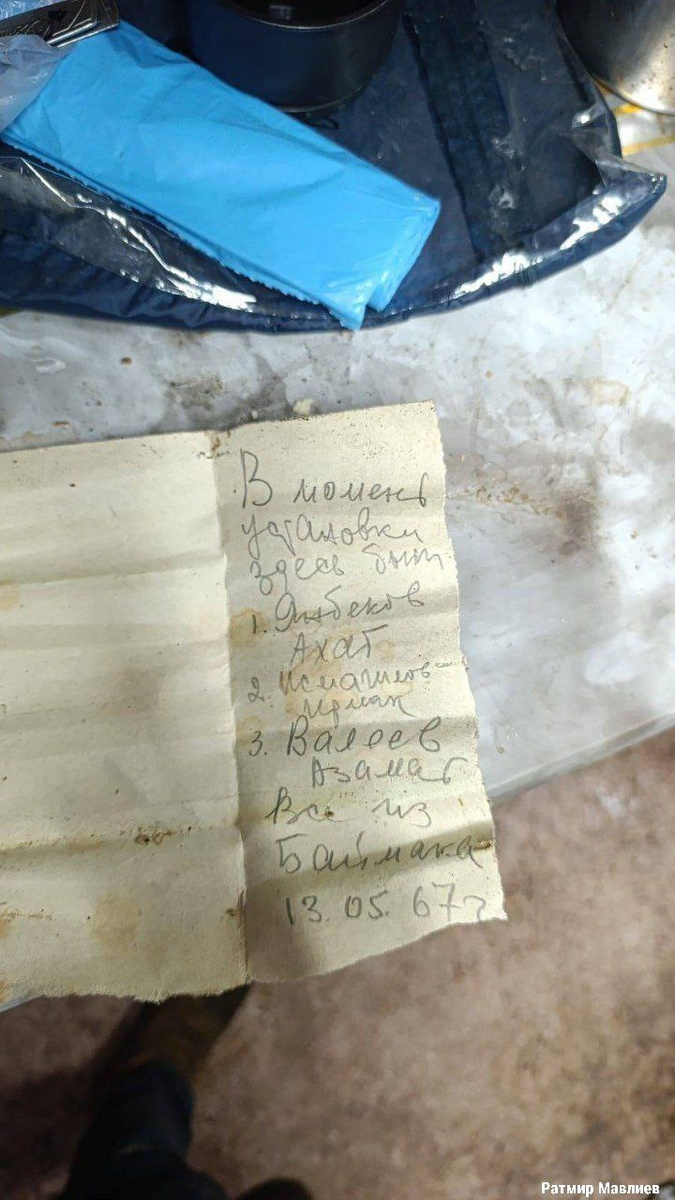 В момент
установки
здесь были
1. Янбеков
Ахат
2. Исмагилов
Ирмак
3. Валеев
Азамат
Все из
Баймака
13.05.67г
Ратмир Мавлиев